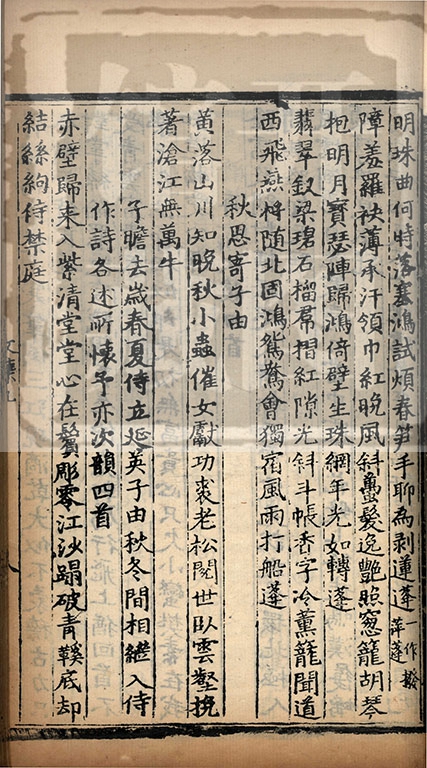 明珠曲何時落塞鴻試煩春笋手聊為剥蓮蓬一作撥萍蓬
障羞羅袂薄承汗領巾紅晚風斜蠆髮逸艷照窓籠胡琴
抱明月寶瑟陣歸鴻倚壁生珠網年光如轉蓬
翡翠釵梁碧石榴裙摺紅隙光斜斗帳香字冷薰籠聞道
西飛燕将随北固鴻鴛鴦會獨宿風雨打船蓬
秋思寄子由
黄落山川知晚秋小蟲催女獻功裘老松閱世卧雲壑挽
著滄江無萬牛
子瞻去歲春夏侍立延英子由秋冬間相繼入侍
作詩各述所懷予亦次韻四首
赤壁歸来入紫清堂堂心在鬢彫零江沙蹋破青鞵底却
結絲絇侍禁庭